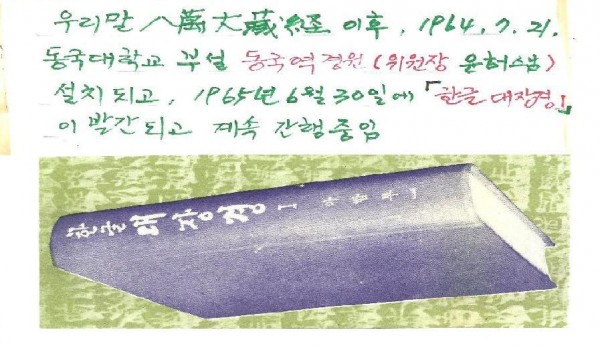 우리말 八萬大藏経 이후, 1964.7.21.
동국대학교 부설 동국역경원(위원장 운허스님)
설치되고, 1965년 6월 30일에 「한글 대장경」
이 발간되고 계속 간행중임
한글 대장경 1 아함부 一